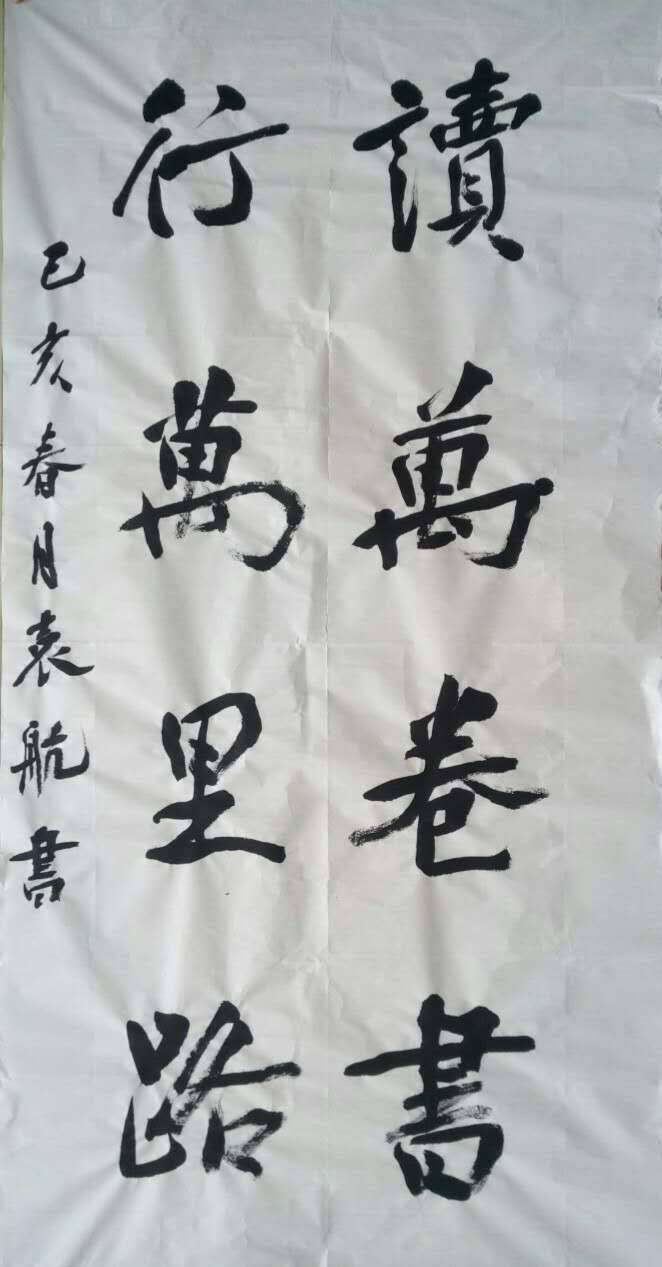 讀萬卷書
行萬里路
己亥春月袁航書